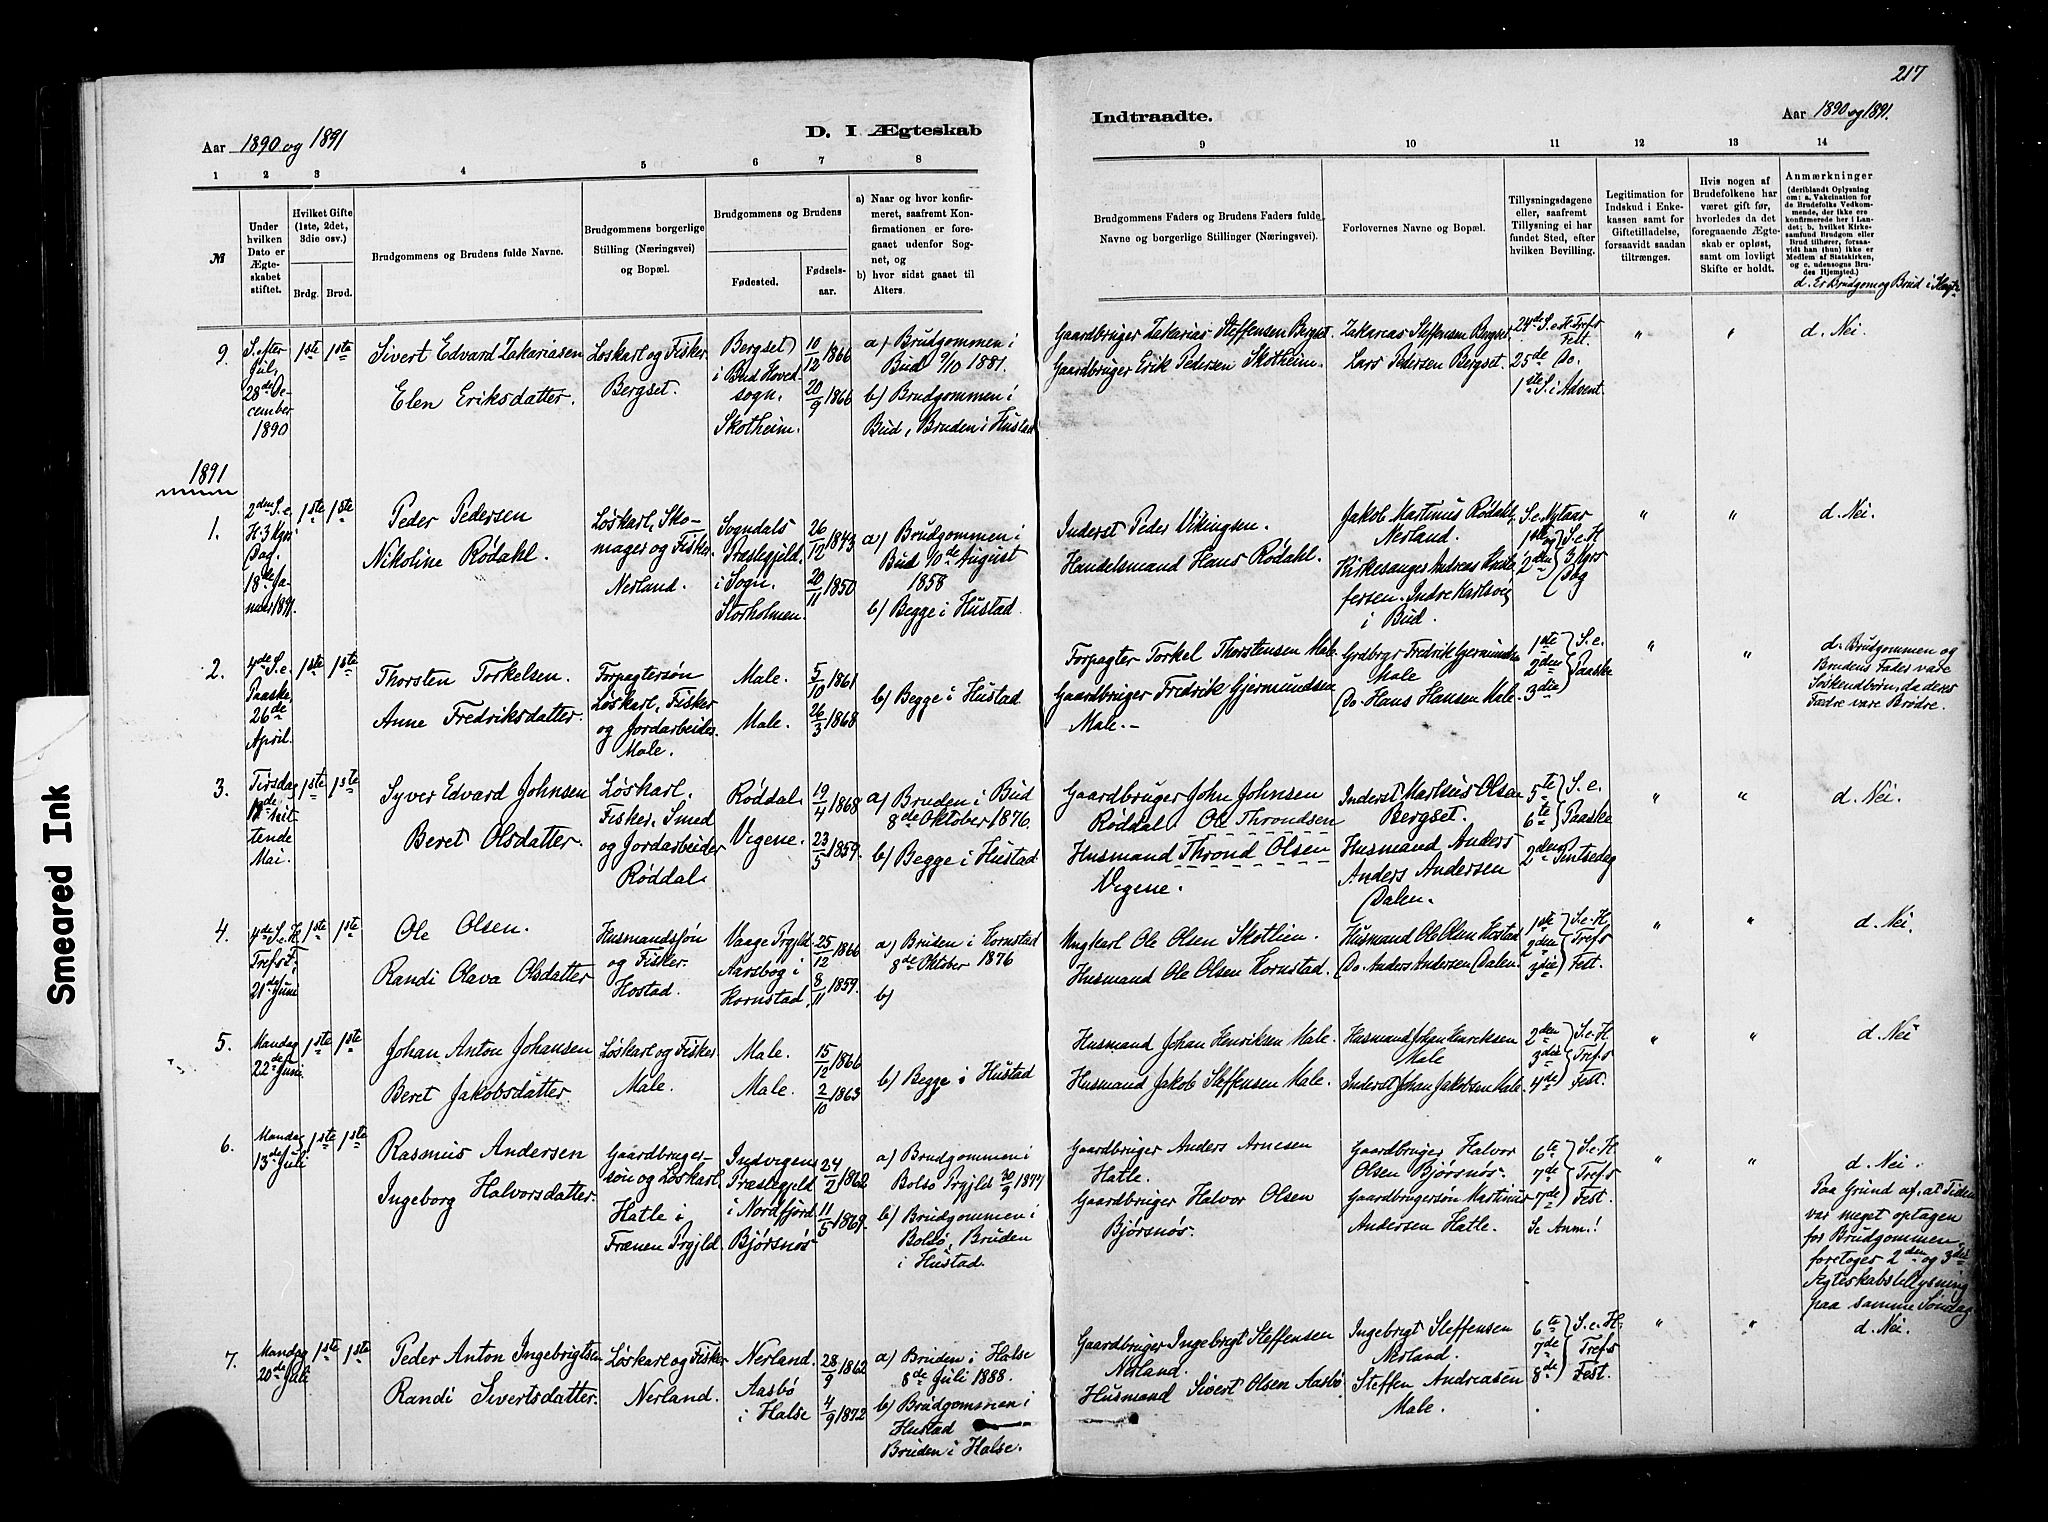 217
Aar 1890 og 1891
D. I Ægteskab
Indtraadte.
Aar 1890 og 1891.
1 2 3 4 5 6 7 8 9 10 11 12 13 14
№
Under hvilken Dato er Ægteskabet stiftet.
Hvilket Gifte (1ste, 2det, 3die osv.)
Brdg. Brud.
Brudgommens og Brudens fulde Navne.
Brudgommens borgerlige Stilling (Næringsvei) og Bopæl.
Brudgommens og Brudens
Fødested.
Fødselsaar.
a) Naar og hvor konfirmeret, saafremt Konfirmationen er foregaaet udenfor Sognet, og
b) hvor sidst gaaet til Alters.
Brudgommens Faders og Brudens Faders fulde Navne og borgerlige Stillinger (Næringsvei).
Forlovernes Navne og Bopæl.
Tillysningsdagene eller, saafremt Tillysning ei har fundet Sted, efter hvilken Bevilling.
Legitimation for Indskud i Enkekassen samt for Giftetilladelse, forsaavidt saadan tiltrænges.
Hvis nogen af Brudefolkene har været gift før, hvorledes da det foregaaende Ægteskab er opløst, samt om lovligt Skifte er holdt.
Anmærkninger
(deriblandt Oplysning om: a. Vakcination for de Brudefolks Vedkommende, der ikke ere konfirmerede her i Landet; b. hvilket Kirkesamfund Brudgom eller Brud tilhører, forsaavidt han (hun) ikke er Medlem af Statskirken, og c. udensogns Brudes Hjemsted.)
d. Er Brudgom og Brud i Slægt
9. S. efter Jul, 28de December 1890
1ste 1ste
Sivert Edvard Zakariasen
Elen Eriksdatter.
Løskarl og Fisker. Bergset.
Bergset i Bud Hovedsogn.
Skotheim.
10/12 1866
20/9 1866
a) Brudgommen i Bud 9/10 1881.
b) Brudgommen i Bud, Bruden i Hustad
Gaardbruger Zakarias Steffensen Bergset.
Gaardbruger Erik Pedersen Skotheim.
Zakarias Steffensen Bergset.
Lars Pedersen Bergset.
24de S. e. H. Trefs Fest.
25de Do.
1ste S. i Advent.
" " d. Nei
1891
1. 2den S. e. H. 3 Kgrs Dag. 18de Januar 1891.
1ste 1ste
Peder Pedersen
Nikoline Rødahl.
Løskarl, Skomager og Fisker Nerland.
Sogndals Præstegjeld, i Sogn.
Storholmen.
26/12 1843
20/11 1850
a) Brudgommen i Bud 10de August 1858
b) Begge i Hustad.
Inderst Peder Vikingsen.
Handelsmand Hans Rødahl.
Jakob Martinus Rødahl, Nerland.
Kirkesanger Andreas Kristofersen. Indre Harlsvig i Bud.
S. e. Nytaar
1ste og 2den S. e. H 3 Kgrs Dag
" " d. Nei.
2. 4de S. e. Paaske 26de April.
1ste 1ste
Thorsten Torkelsen.
Anne Fredriksdatter.
Forpagtersøn Løskarl, Fisker og Jordarbeider. Male.
Male.
Male.
5/10 1861
26/3 1868
b) Begge i Hustad
Forpagter Torkel Thorstensen Male.
Gaardbruger Fredrik Gjermundsen Male.
Grdbrgr Fredrik Gjermundsen Male
Do. Hans Hansen Male.
1ste 2den 3die S. e. Paaske
" " d. Brudgommen og Brudens Fader vare Søskendbørn, da deres Fædre vare Brødre.
3. Tirsdag 19de nittende Mai.
1ste 1ste
Syver Edvard Johnsen
Beret Olsdatter.
Løskarl. Fisker, Smed og Jordarbeider Røddal.
Røddal
Vigene.
19/4 1868
23/5 1859.
a) Bruden i Bud 8de Oktober 1876.
b) Begge i Hustad
Gaardbruger John Johnsen Røddal. Ole Throndsen
Husmand Thrond Olsen Vigene.
Inderst Markus Olsen Bergset.
Husmand Anders Anders Andersen Dalen.
5te 6te S. e. Paaske
2den Pintsedag
" " d. Nei.
4. 4de S. e. H. Trefs F. 21de Juni
1ste 1ste
Ole Olsen.
Randi Olava Olsdatter
Husmandssøn og Fisker. Hostad.
Vaage Prgjld
Aarsbog i Kornstad.
25/12 1866
8/11 1859.
a) Bruden i Kornstad 8de Oktober 1876
b)
Ungkarl Ole Olsen Skotlien.
Husmand Ole Olsen Kornstad.
Husmand Ole Olsen Hostad
Do. Anders Andersen Dalen.
1ste 2den 3die S. e. H. Trefs Fest.
" " d. Nei.
5. Mandag 22de Juni.
1ste 1ste
Johan Anton Johansen
Beret Jakobsdatter.
Løskarl og Fisker. Male.
Male.
Male.
15/12 1866
2/10 1863
b) Begge i Hustad
Husmand Johan Henriksen Male.
Husmand Jakob Steffensen Male.
Husmand Johan Henriksen Male
Inderst Johan Jakobsen Male.
2den 3die 4de S. e. H. Trefs Fest.
" " d. Nei
6. Mandag 13de Juli
1ste 1ste
Rasmus Andersen
Ingeborg Halvorsdatter.
Gaardbrugersøn og Løskarl Hatle i Frænen Prgjld.
Indvigens Præstegjeld i Nordfjord.
Bjørsnøs
24/2 1862
11/5 1869
a) Brudgommen i Bolsø Prgjld 30/9 1877
b) Brudgommen i Bolsø, Bruden i Hustad.
Gaardbruger Anders Arnesen Hatle.
Gaardbruger Halvor Olsen Bjørsnøs.
Gaardbruger Halvor Olsen Bjørsnøs.
Gaardbrugersøn Martinus Andersen Hatle.
6te 7de 7de S. e. H. Trefs Fest.
Se Anm.!
" " d. Nei.
Paa Grund af, at Tiden var meget optagen for Brudgommen, foretoges 2den og 3die Ægteskabstillysning paa samme Søndag
7. Mandag 20de Juli
1ste 1ste
Peder Anton Ingebrigtsen
Randi Sivertsdatter.
Løskarl og Fisker Nerland.
Nerland.
Aasbø i Halse
28/9 1862
4/9 1872
a) Bruden i Halse 8de Juli 1888.
b) Brudgommen i Hustad
Bruden i Halse.
Gaardbruger Ingebrigt Steffensen Nerland.
Husmand Sivert Olsen Aasbø
Ingebrigt Steffensen Nerland.
Steffen Andreasen Male.
6te 7de 8de S. e. H. Trefs Fest.
" " d. Nei.
Smeared Ink